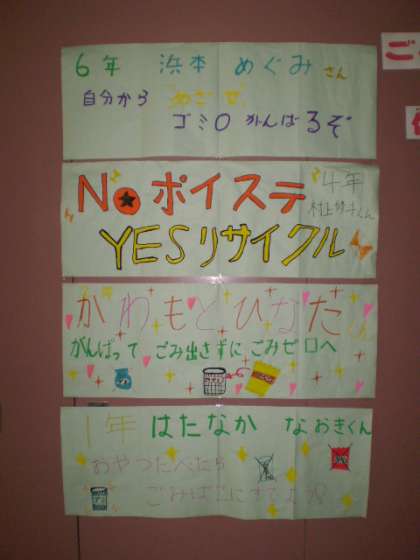 6年 浜本 めぐみさん
自分から めざせ
ゴミ0 がんばるぞ
Noポイステ
4年
村上
くん
YESリサイクル
かわもとひなた
がんばって ごみ出さずに ごみゼロへ
1年 はたなか なおきくん
おやつたべたら
ごみばこにすてよう
ご